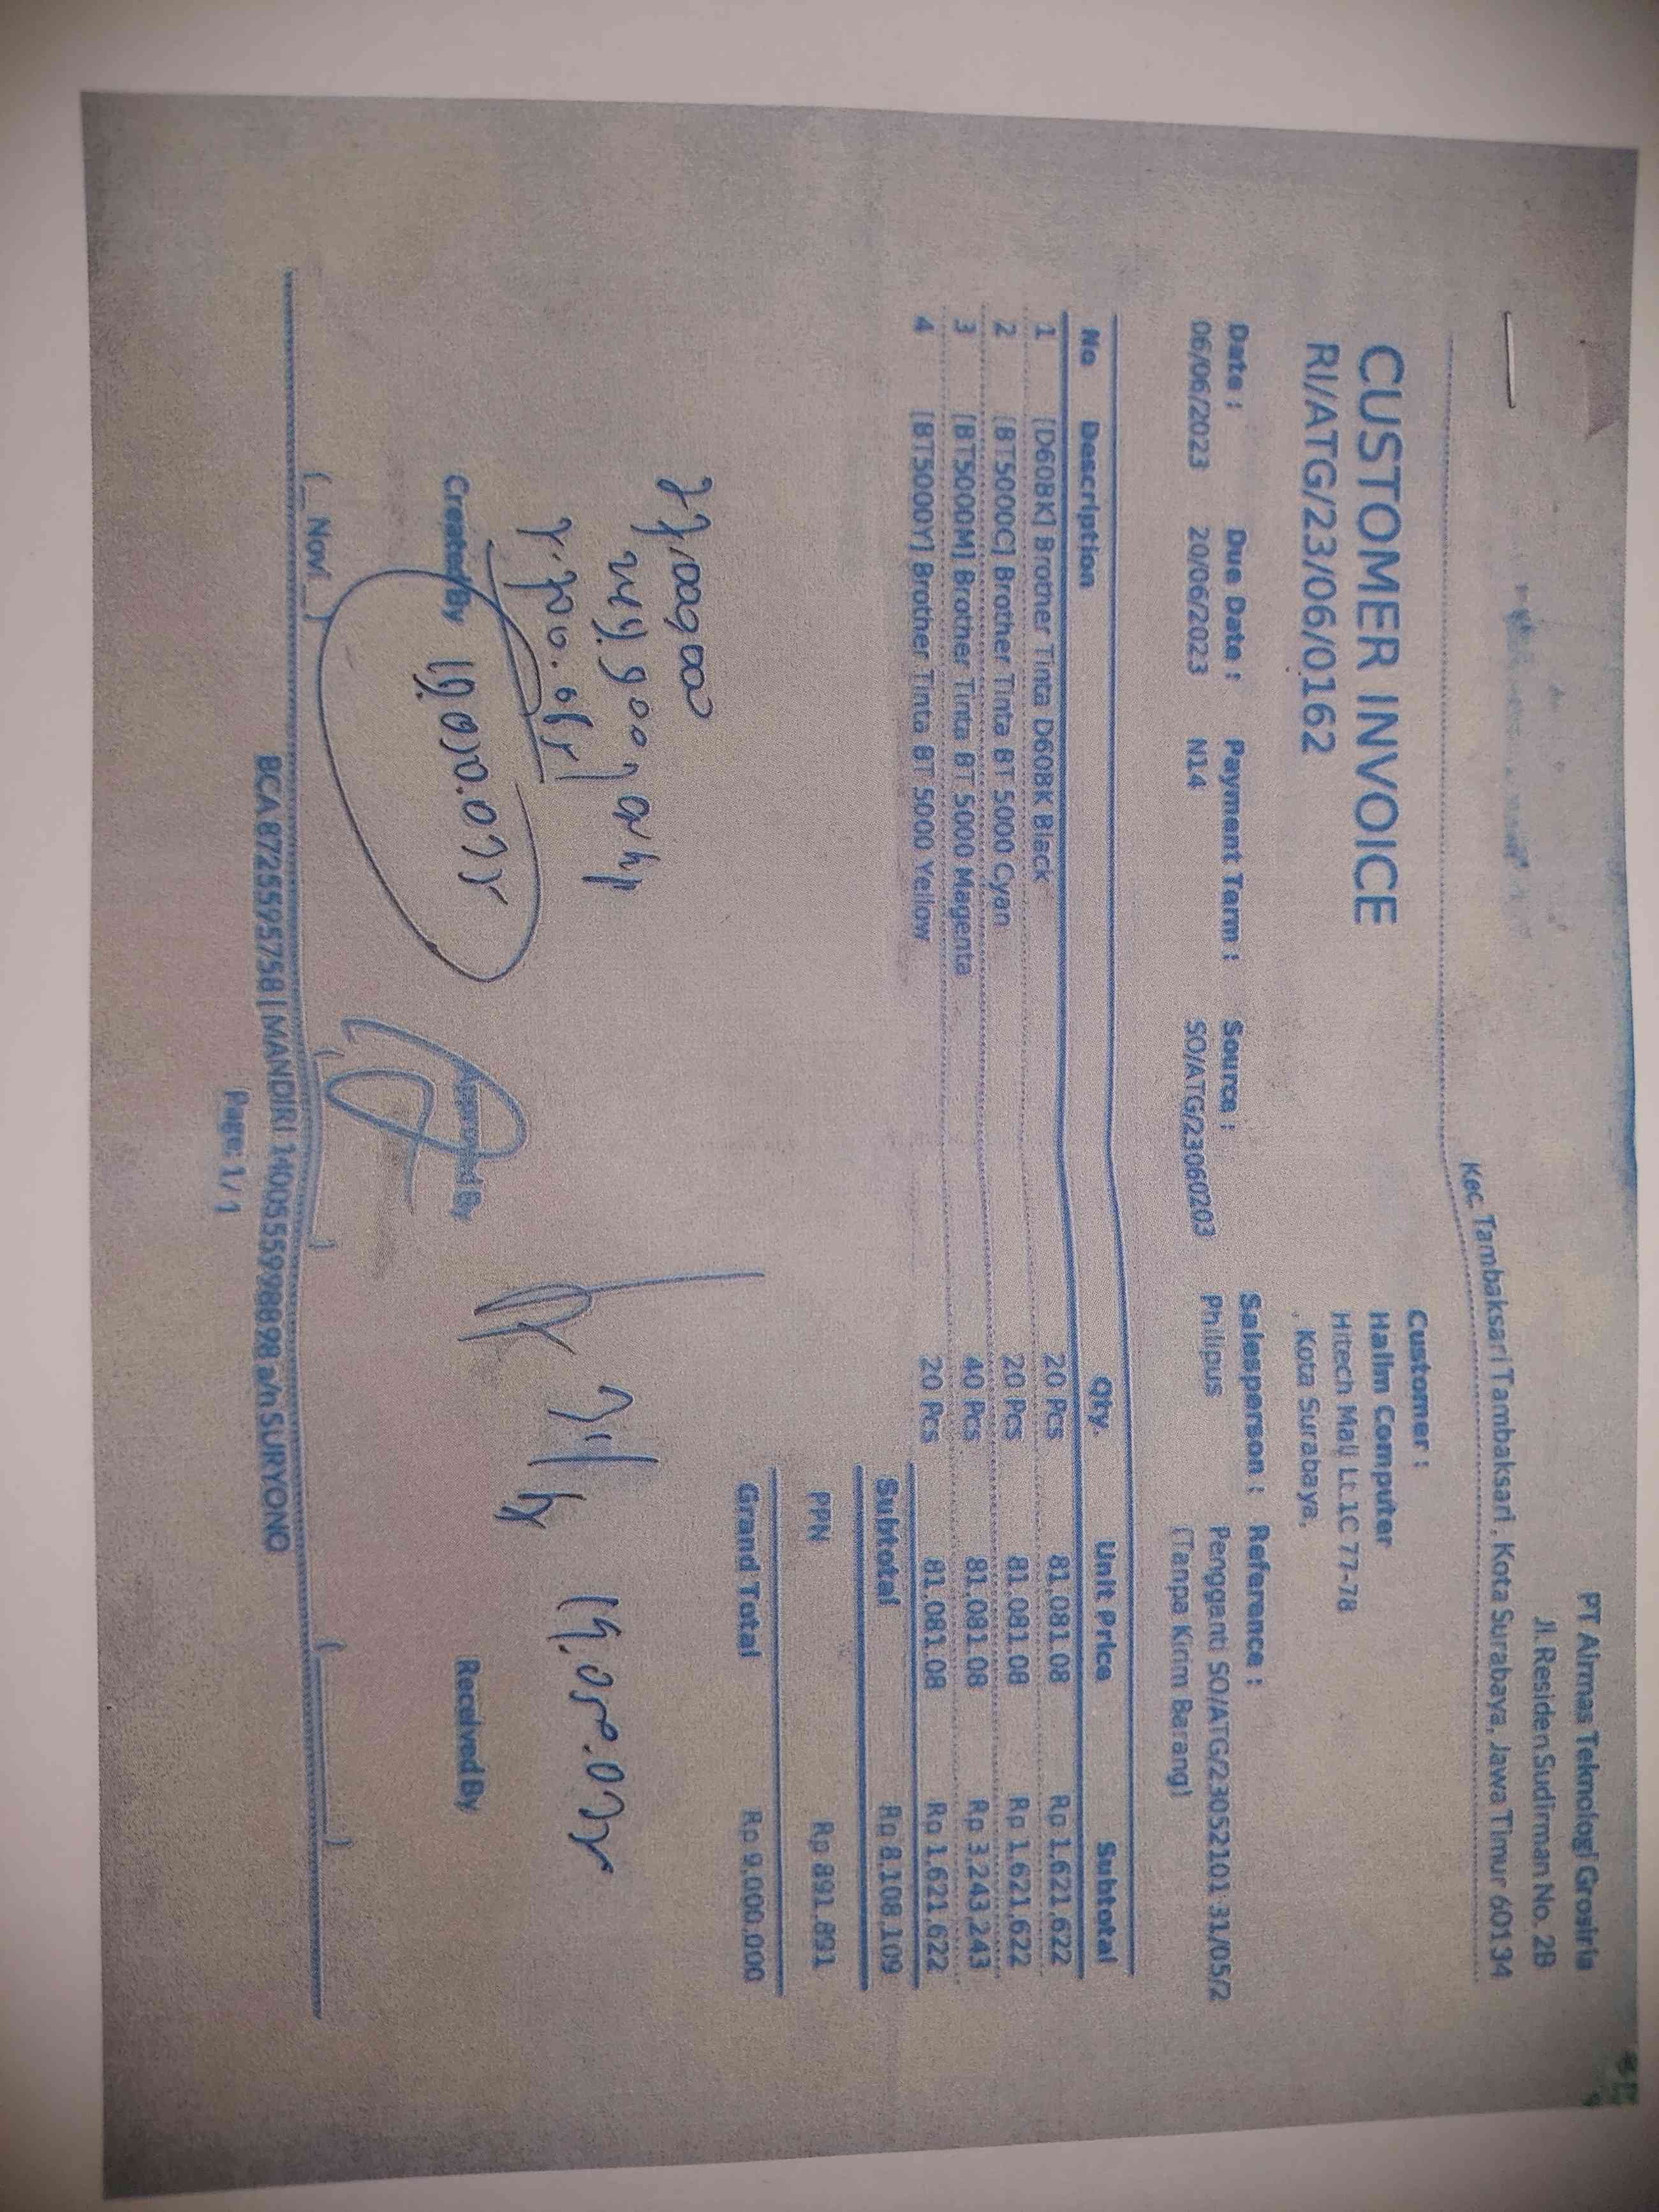 PT Airmas Teknologi Grosiria
Jl. Residen Sudirman No. 2B
Kec. Tambaksari Tambaksari, Kota Surabaya, Jawa Timur 60134
CUSTOMER INVOICE
RI/ATG/23/06/0162
Customer :
Halim Computer
Hitech Mall Lt.1C 77-78
, Kota Surabaya,
Date : Due Date : Payment Term : Source : Salesperson : Reference :
06/06/2023 20/06/2023 N14 SO/ATG/23060203 Philipus Pengganti SO/ATG/23052101 31/05/2
(Tanpa Kirim Barang)
No Description Qty. Unit Price Subtotal
1 [D60BK] Brother Tinta D60BK Black 20 Pcs 81,081.08 Rp 1.621.622
2 [BT5000C] Brother Tinta BT 5000 Cyan 20 Pcs 81,081.08 Rp 1.621.622
3 [BT5000M] Brother Tinta BT 5000 Magenta 40 Pcs 81,081.08 Rp 3.243.243
4 [BT5000Y] Brother Tinta BT 5000 Yellow 20 Pcs 81,081.08 Rp 1.621.622
Subtotal Rp 8.108.109
PPN Rp 891.891
Grand Total Rp 9.000.000
Created By Approved By Received By
(_Novi_) ( ) ( )
BCA 8725595758 | MANDIRI 1400555988898 a/n SURYONO
Page: 1/1